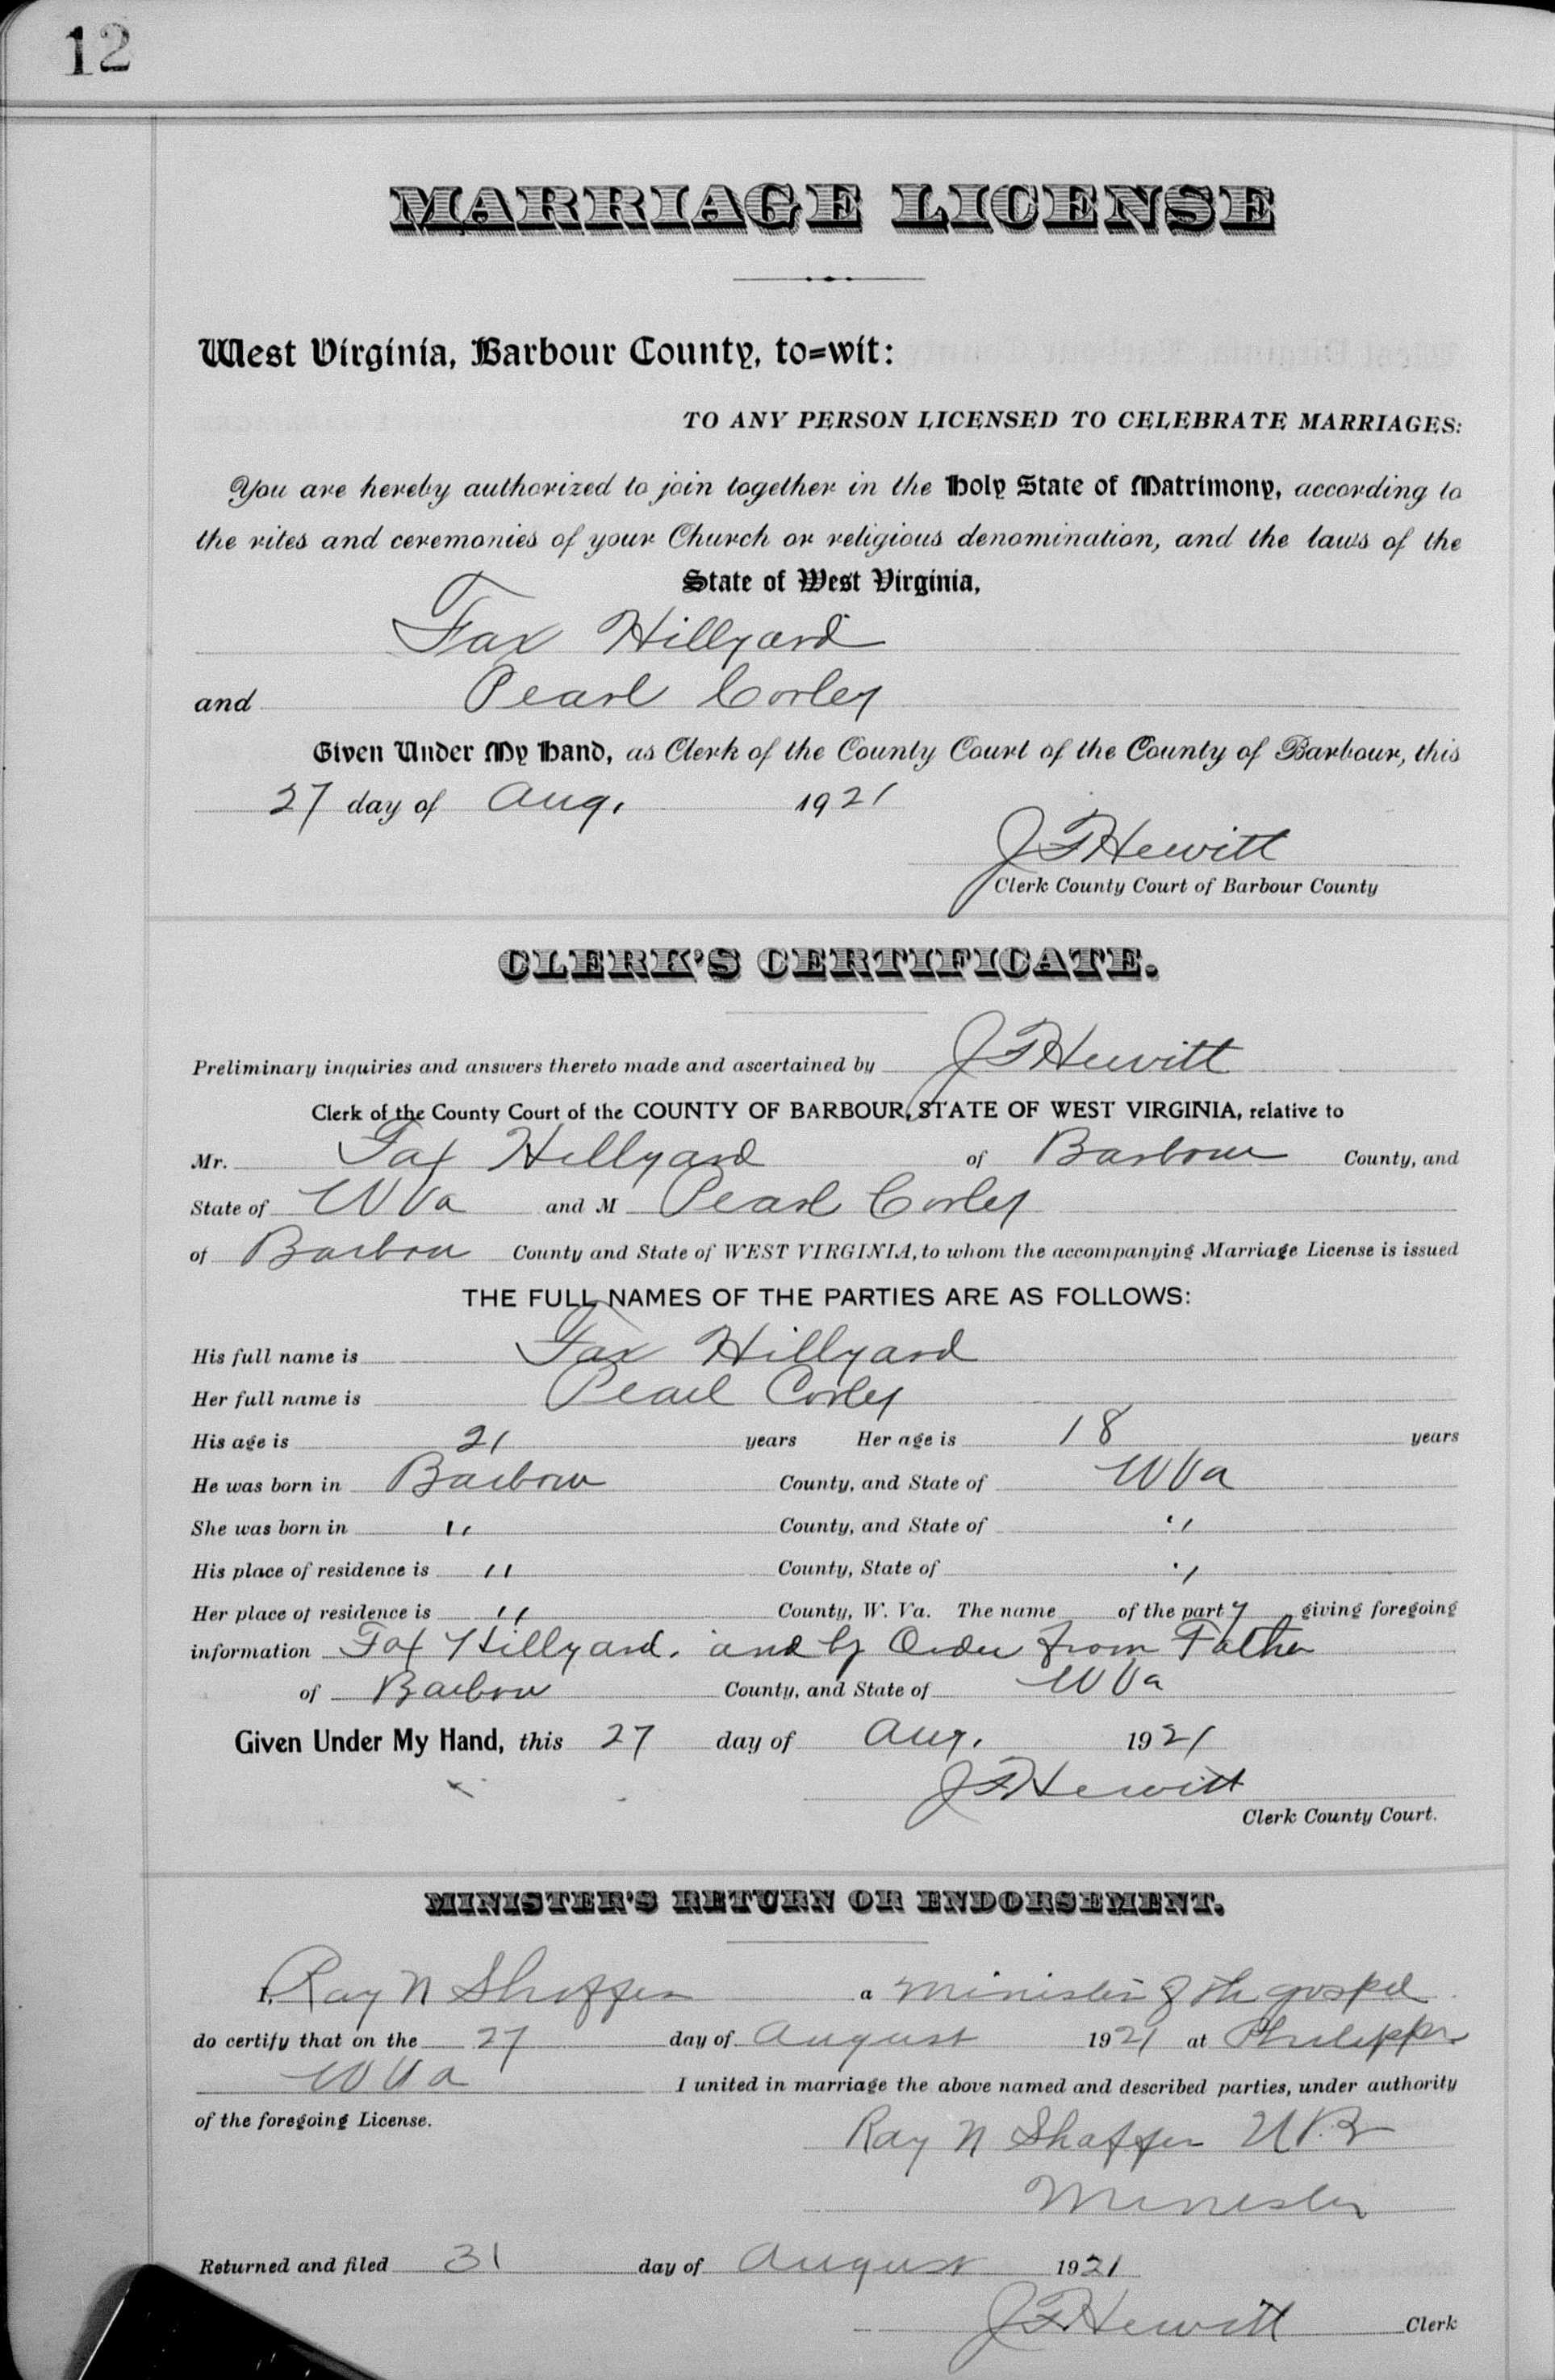 12
MARRIAGE LICENSE
West Virginia, Barbour County, to=wit:
TO ANY PERSON LICENSED TO CELEBRATE MARRIAGES:
You are hereby authorized to join together in the Holy State of Matrimony, according to
the rites and ceremonies of your Church or religious denomination, and the laws of the
State of West Virginia,
Fax Hillyard
and Pearl Corley
Given Under My Hand, as Clerk of the County Court of the County of Barbour, this
27 day of Aug. 1921
J F Hewitt
Clerk County Court of Barbour County
CLERK'S CERTIFICATE.
Preliminary inquiries and answers thereto made and ascertained by J F Hewitt
Clerk of the County Court of the COUNTY OF BARBOUR, STATE OF WEST VIRGINIA, relative to
Mr. Fax Hillyard of Barbour County, and
State of W Va and M Pearl Corley
of Barbour County and State of WEST VIRGINIA, to whom the accompanying Marriage License is issued
THE FULL NAMES OF THE PARTIES ARE AS FOLLOWS:
His full name is Fax Hillyard
Her full name is Pearl Corley
His age is 21 years Her age is 18 years
He was born in Barbour County, and State of W Va
She was born in " County, and State of "
His place of residence is " County, State of "
Her place of residence is " County, W. Va. The name of the party giving foregoing
information Fax Hillyard. and by Order from Father
of Barbour County, and State of W Va
Given Under My Hand, this 27 day of Aug. 1921
J F Hewitt
Clerk County Court.
MINISTER'S RETURN OR ENDORSEMENT.
I, Ray N Shaffer a minister of the gospel
do certify that on the 27 day of August 1921 at Philippi
W Va I united in marriage the above named and described parties, under authority
of the foregoing License.
Ray N Shaffer U.B
Minister
Returned and filed 31 day of August 1921
J F Hewitt Clerk